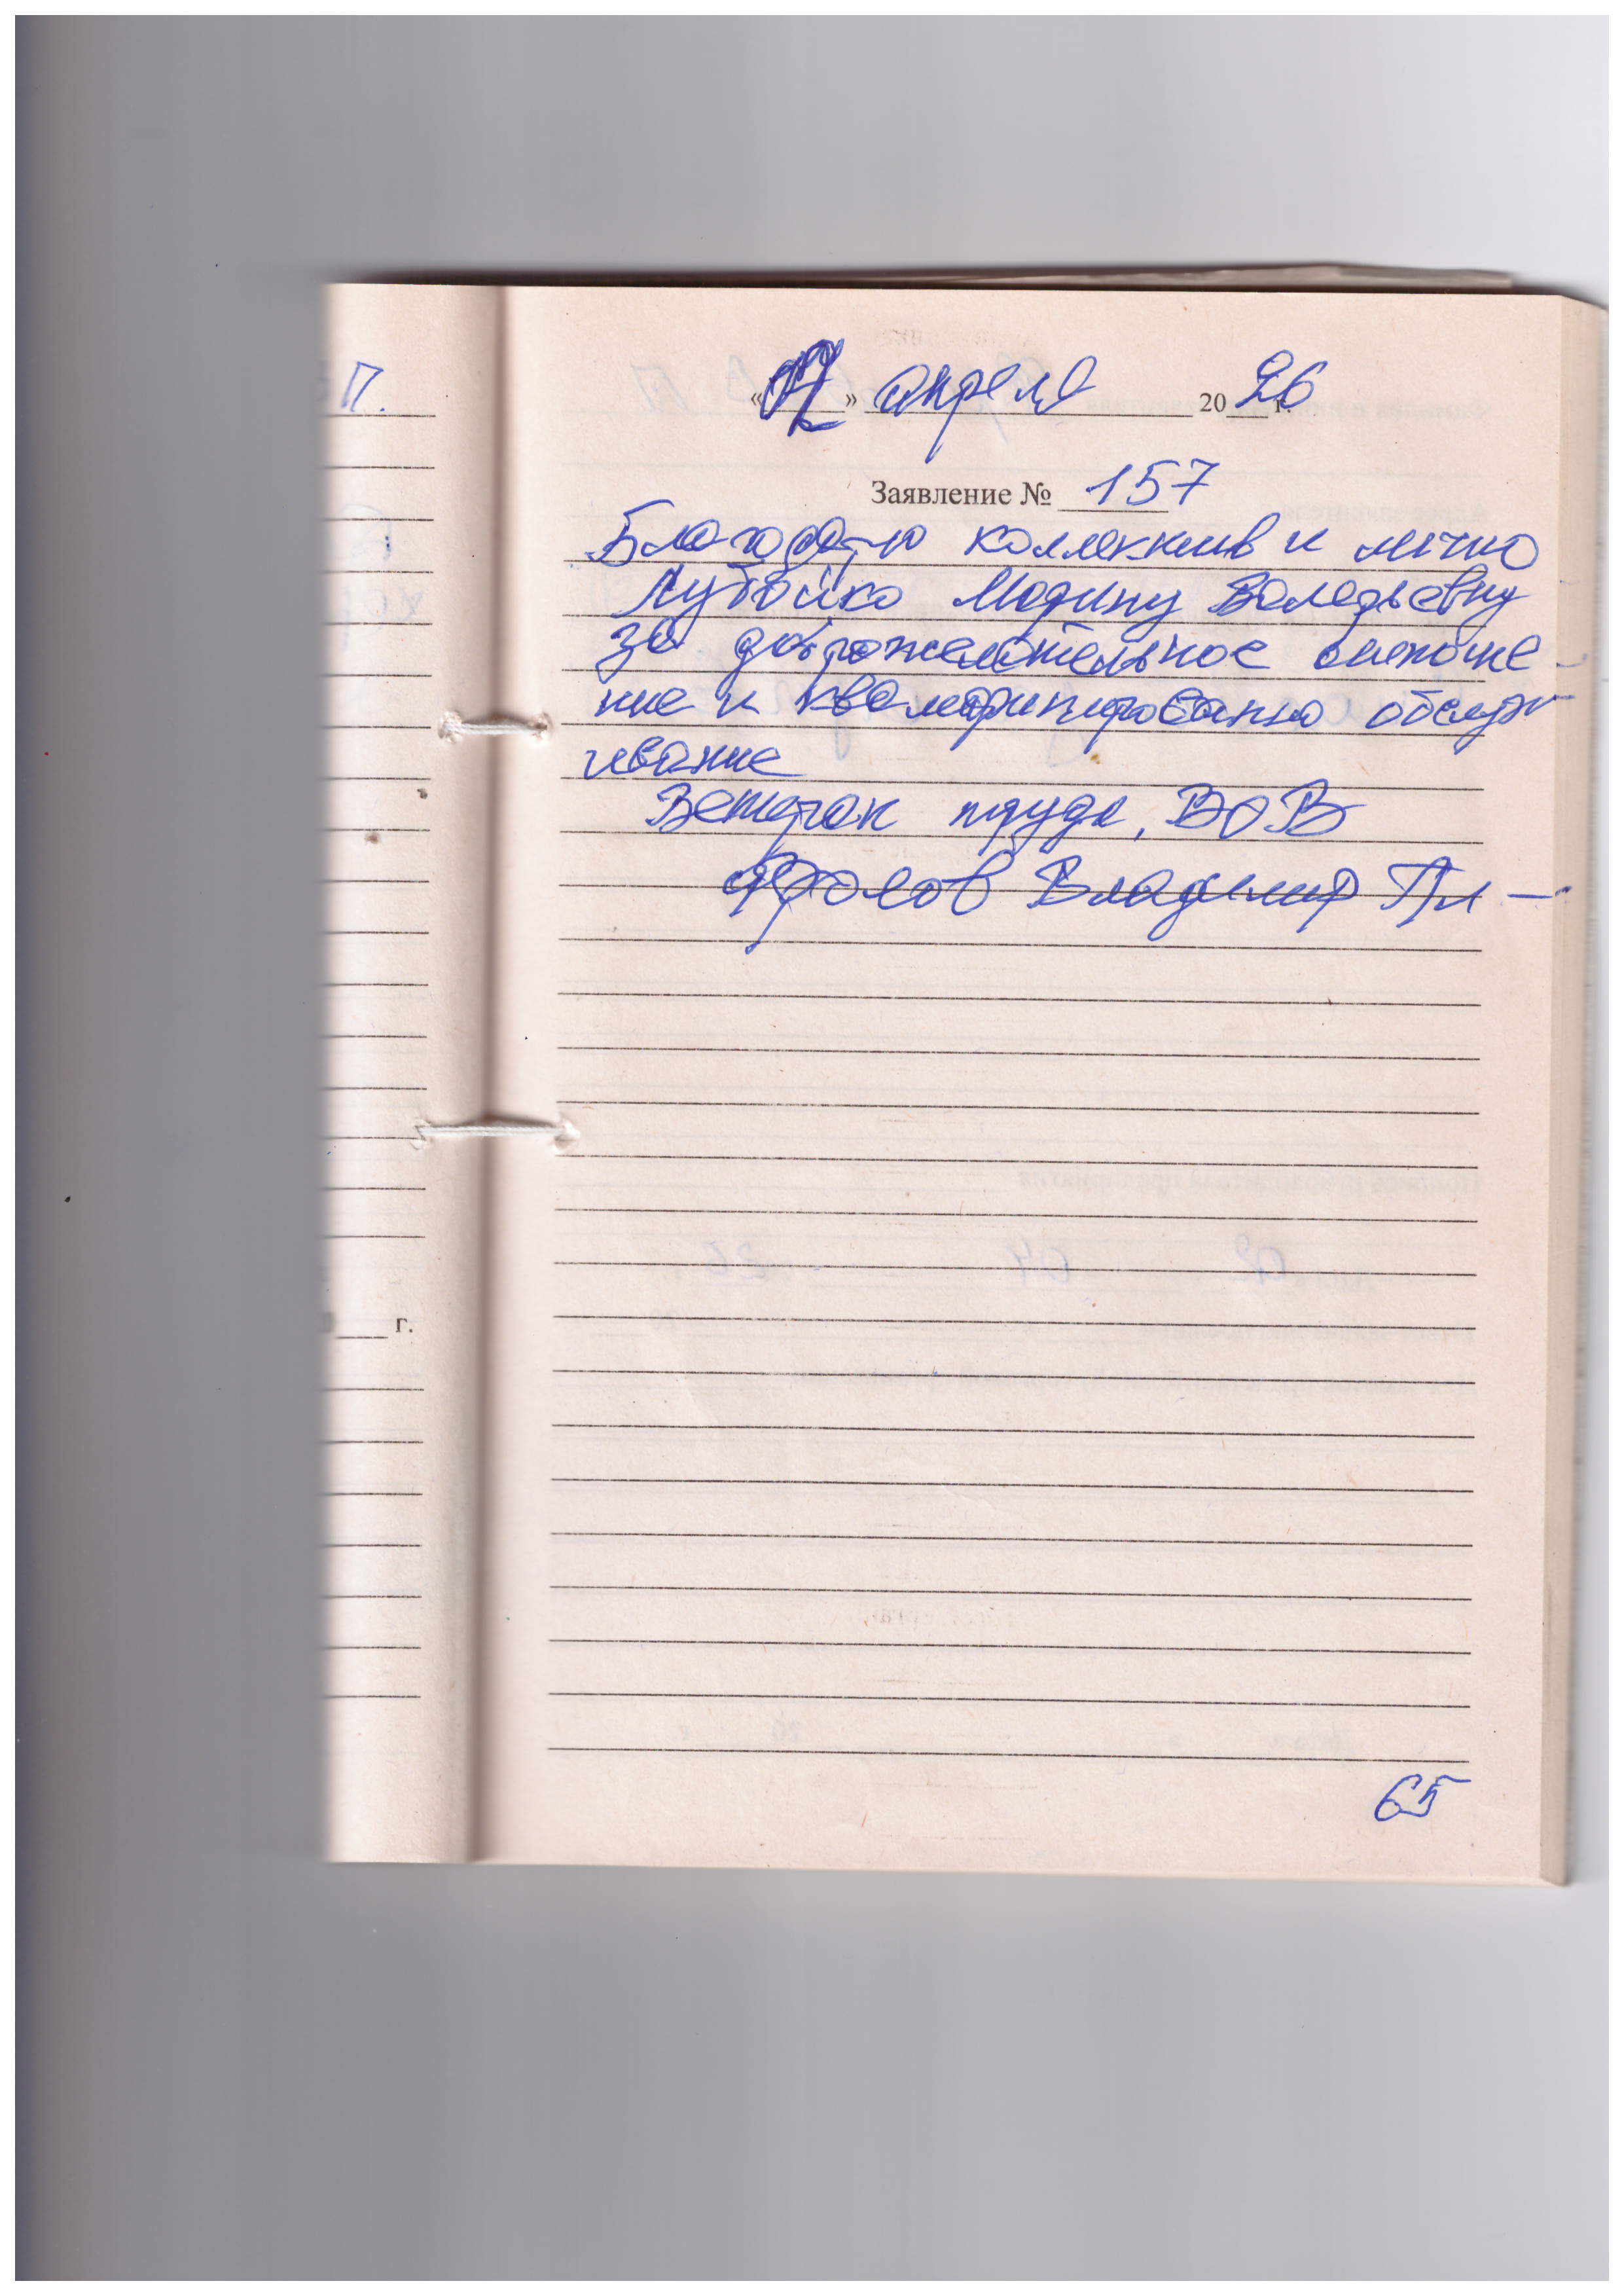 П.
« » апреля 2026 г.
Заявление № 157
Благодарю коллектив и лично
Лубойко Марину Валерьевну
за доброжелательное отноше
ние и квалифицировано обслуж
ивание
Ветеран труда, ВОВ
Фролов Владимир
г.
65